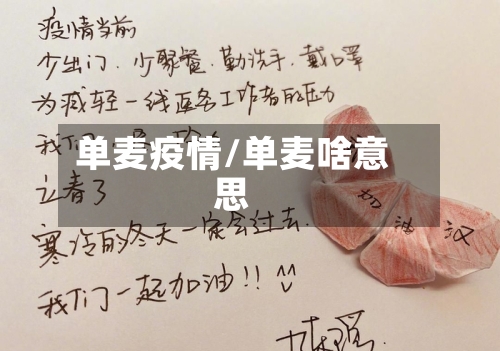 疫情当前
少出门.少聚餐.勤洗手.戴口罩
为减轻一线医务工作者的压力
我们
单麦疫情/单麦啥意
思
立春了
寒冷的冬天一定会过去.
我们一起加油!!
油 汉